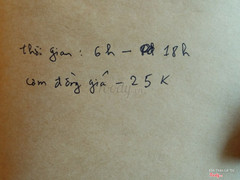 thời gian : 6h – 18h
cơm đồng giá – 25 K